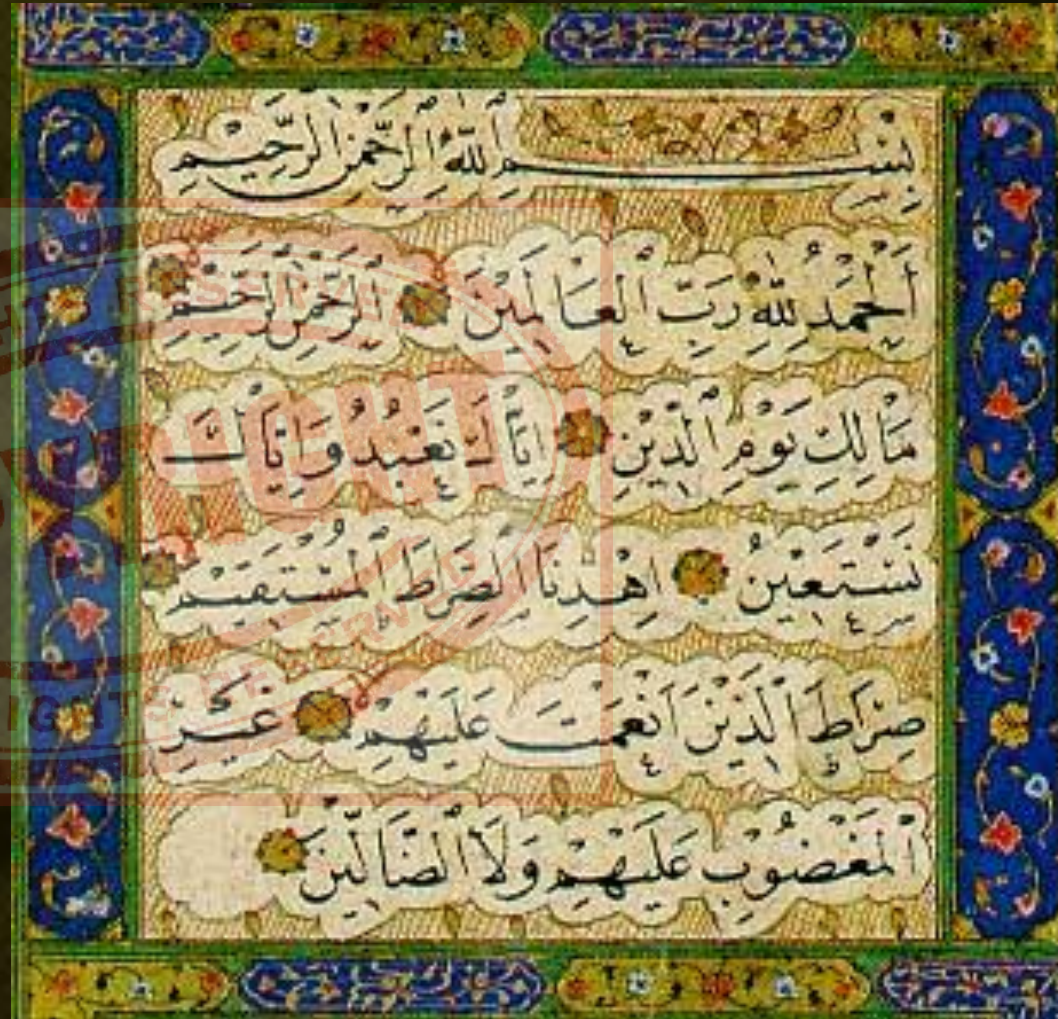 بِسْمِ ٱللّٰهِ ٱلرَّحْمٰنِ ٱلرَّحِيْمِ
اَلْحَمْدُ لِلّٰهِ رَبِّ ٱلْعَالَمِيْنَ ٱلرَّحْمٰنِ ٱلرَّحِيْمِ
مَالِكِ يَوْمِ ٱلدِّيْنِ اِيَّاكَ نَعْبُدُ وَاِيَّاكَ
نَسْتَعِيْنُ اِهْدِنَا ٱلصِّرَاطَ ٱلْمُسْتَقِيْمَ
صِرَاطَ ٱلَّذِيْنَ اَنْعَمْتَ عَلَيْهِمْ غَيْرِ
ٱلْمَغْضُوْبِ عَلَيْهِمْ وَلَا ٱلضَّالِّيْنَ